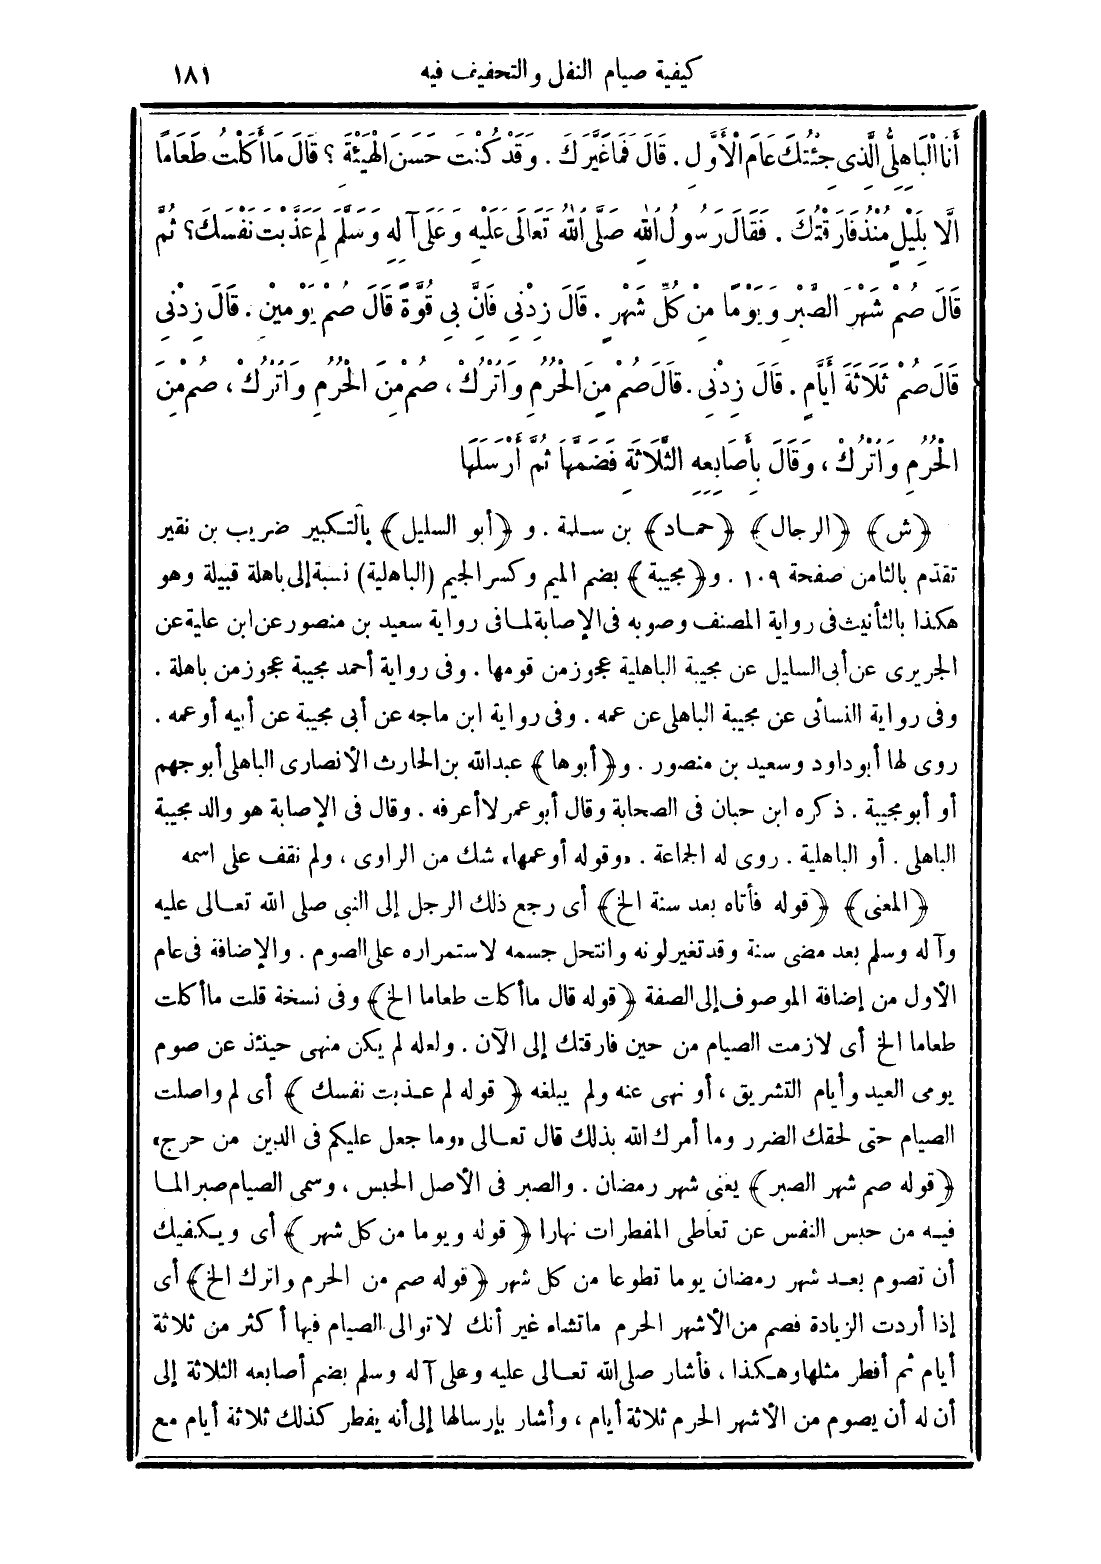 كيفية صيام النفل والتخفيف فيه ١٨١
أَنَا الْبَاهِلِىُّ الَّذِى جِئْتُكَ عَامَ الْأَوَّلِ . قَالَ فَمَا غَيَّرَكَ . وَقَدْ كُنْتَ حَسَنَ الْهَيْئَةِ ؟ قَالَ مَا أَكَلْتُ طَعَامًا
الَّا بِلَيْلٍ مُنْذُ فَارَقْتُكَ . فَقَالَ رَسُولُ اللهِ صَلَّى اللهُ تَعَالَى عَلَيْهِ وَعَلَى آلِهِ وَسَلَّمَ لِمَ عَذَّبْتَ نَفْسَكَ ؟ ثُمَّ
قَالَ صُمْ شَهْرَ الصَّبْرِ وَيَوْمًا مِنْ كُلِّ شَهْرٍ . قَالَ زِدْنِى فَانَّ بِى قُوَّةً قَالَ صُمْ يَوْمَيْنِ . قَالَ زِدْنِى
قَالَ صُمْ ثَلَاثَةَ أَيَّامٍ . قَالَ زِدْنِى . قَالَ صُمْ مِنَ الْحُرُمِ وَاتْرُكْ ، صُمْ مِنَ الْحُرُمِ وَاتْرُكْ ، صُمْ مِنَ
الْحُرُمِ وَاتْرُكْ ، وَقَالَ بِأَصَابِعِهِ الثَّلَاثَةِ فَضَمَّهَا ثُمَّ أَرْسَلَهَا
﴿ش﴾ ﴿الرجال﴾ ﴿حماد﴾ بن سلمة . و ﴿أبو السليل﴾ بالتكبير ضريب بن نقير
تقدّم بالثامن صفحة ١٠٩ . و﴿مجيبة﴾ بضم الميم وكسر الجيم (الباهلية) نسبة إلى باهلة قبيلة وهو
هكذا بالتأنيث فى رواية المصنف وصوبه فى الإصابة لما فى رواية سعيد بن منصور عن ابن علية عن
الجريرى عن أبى السليل عن مجيبة الباهلية عجوز من قومها . وفى رواية أحمد مجيبة عجوز من باهلة .
وفى رواية النسائى عن مجيبة الباهلى عن عمه . وفى رواية ابن ماجه عن أبى مجيبة عن أبيه أو عمه .
روى لها أبو داود وسعيد بن منصور . و﴿أبوها﴾ عبد الله بن الحارث الأنصارى الباهلى أبو جهم
أو أبو مجيبة . ذكره ابن حبان فى الصحابة وقال أبو عمر لا أعرفه . وقال فى الإصابة هو والد مجيبة
الباهلى . أو الباهلية . روى له الجماعة . «وقوله أو عمها» شك من الراوى ، ولم نقف على اسمه
﴿المعنى﴾ ﴿قوله فأتاه بعد سنة الخ﴾ أى رجع ذلك الرجل إلى النبى صلى الله تعالى عليه
وآله وسلم بعد مضى سنة وقد تغير لونه وانتحل جسمه لاستمراره على الصوم . والإضافة فى عام
الأول من إضافة الموصوف إلى الصفة ﴿قوله قال ما أكلت طعاما الخ﴾ وفى نسخة قلت ما أكلت
طعاما الخ أى لازمت الصيام من حين فارقتك إلى الآن . ولعله لم يكن منهى حينئذ عن صوم
يومى العيد وأيام التشريق ، أو نهى عنه ولم يبلغه ﴿ قوله لم عذبت نفسك ﴾ أى لم واصلت
الصيام حتى لحقك الضرر وما أمرك الله بذلك قال تعالى «وما جعل عليكم فى الدين من حرج»
﴿قوله صم شهر الصبر﴾ يعنى شهر رمضان . والصبر فى الأصل الحبس ، وسمى الصيام صبر الما
فيه من حبس النفس عن تعاطى المفطرات نهارا ﴿ قوله ويوما من كل شهر ﴾ أى ويكفيك
أن تصوم بعد شهر رمضان يوما تطوعا من كل شهر ﴿قوله صم من الحرم واترك الخ﴾ أى
إذا أردت الزيادة فصم من الأشهر الحرم ماتشاء غير أنك لا توالى الصيام فيها أكثر من ثلاثة
أيام ثم أفطر مثلها وهكذا ، فأشار صلى الله تعالى عليه وعلى آله وسلم بضم أصابعه الثلاثة إلى
أن له أن يصوم من الأشهر الحرم ثلاثة أيام ، وأشار بإرسالها إلى أنه يفطر كذلك ثلاثة أيام مع